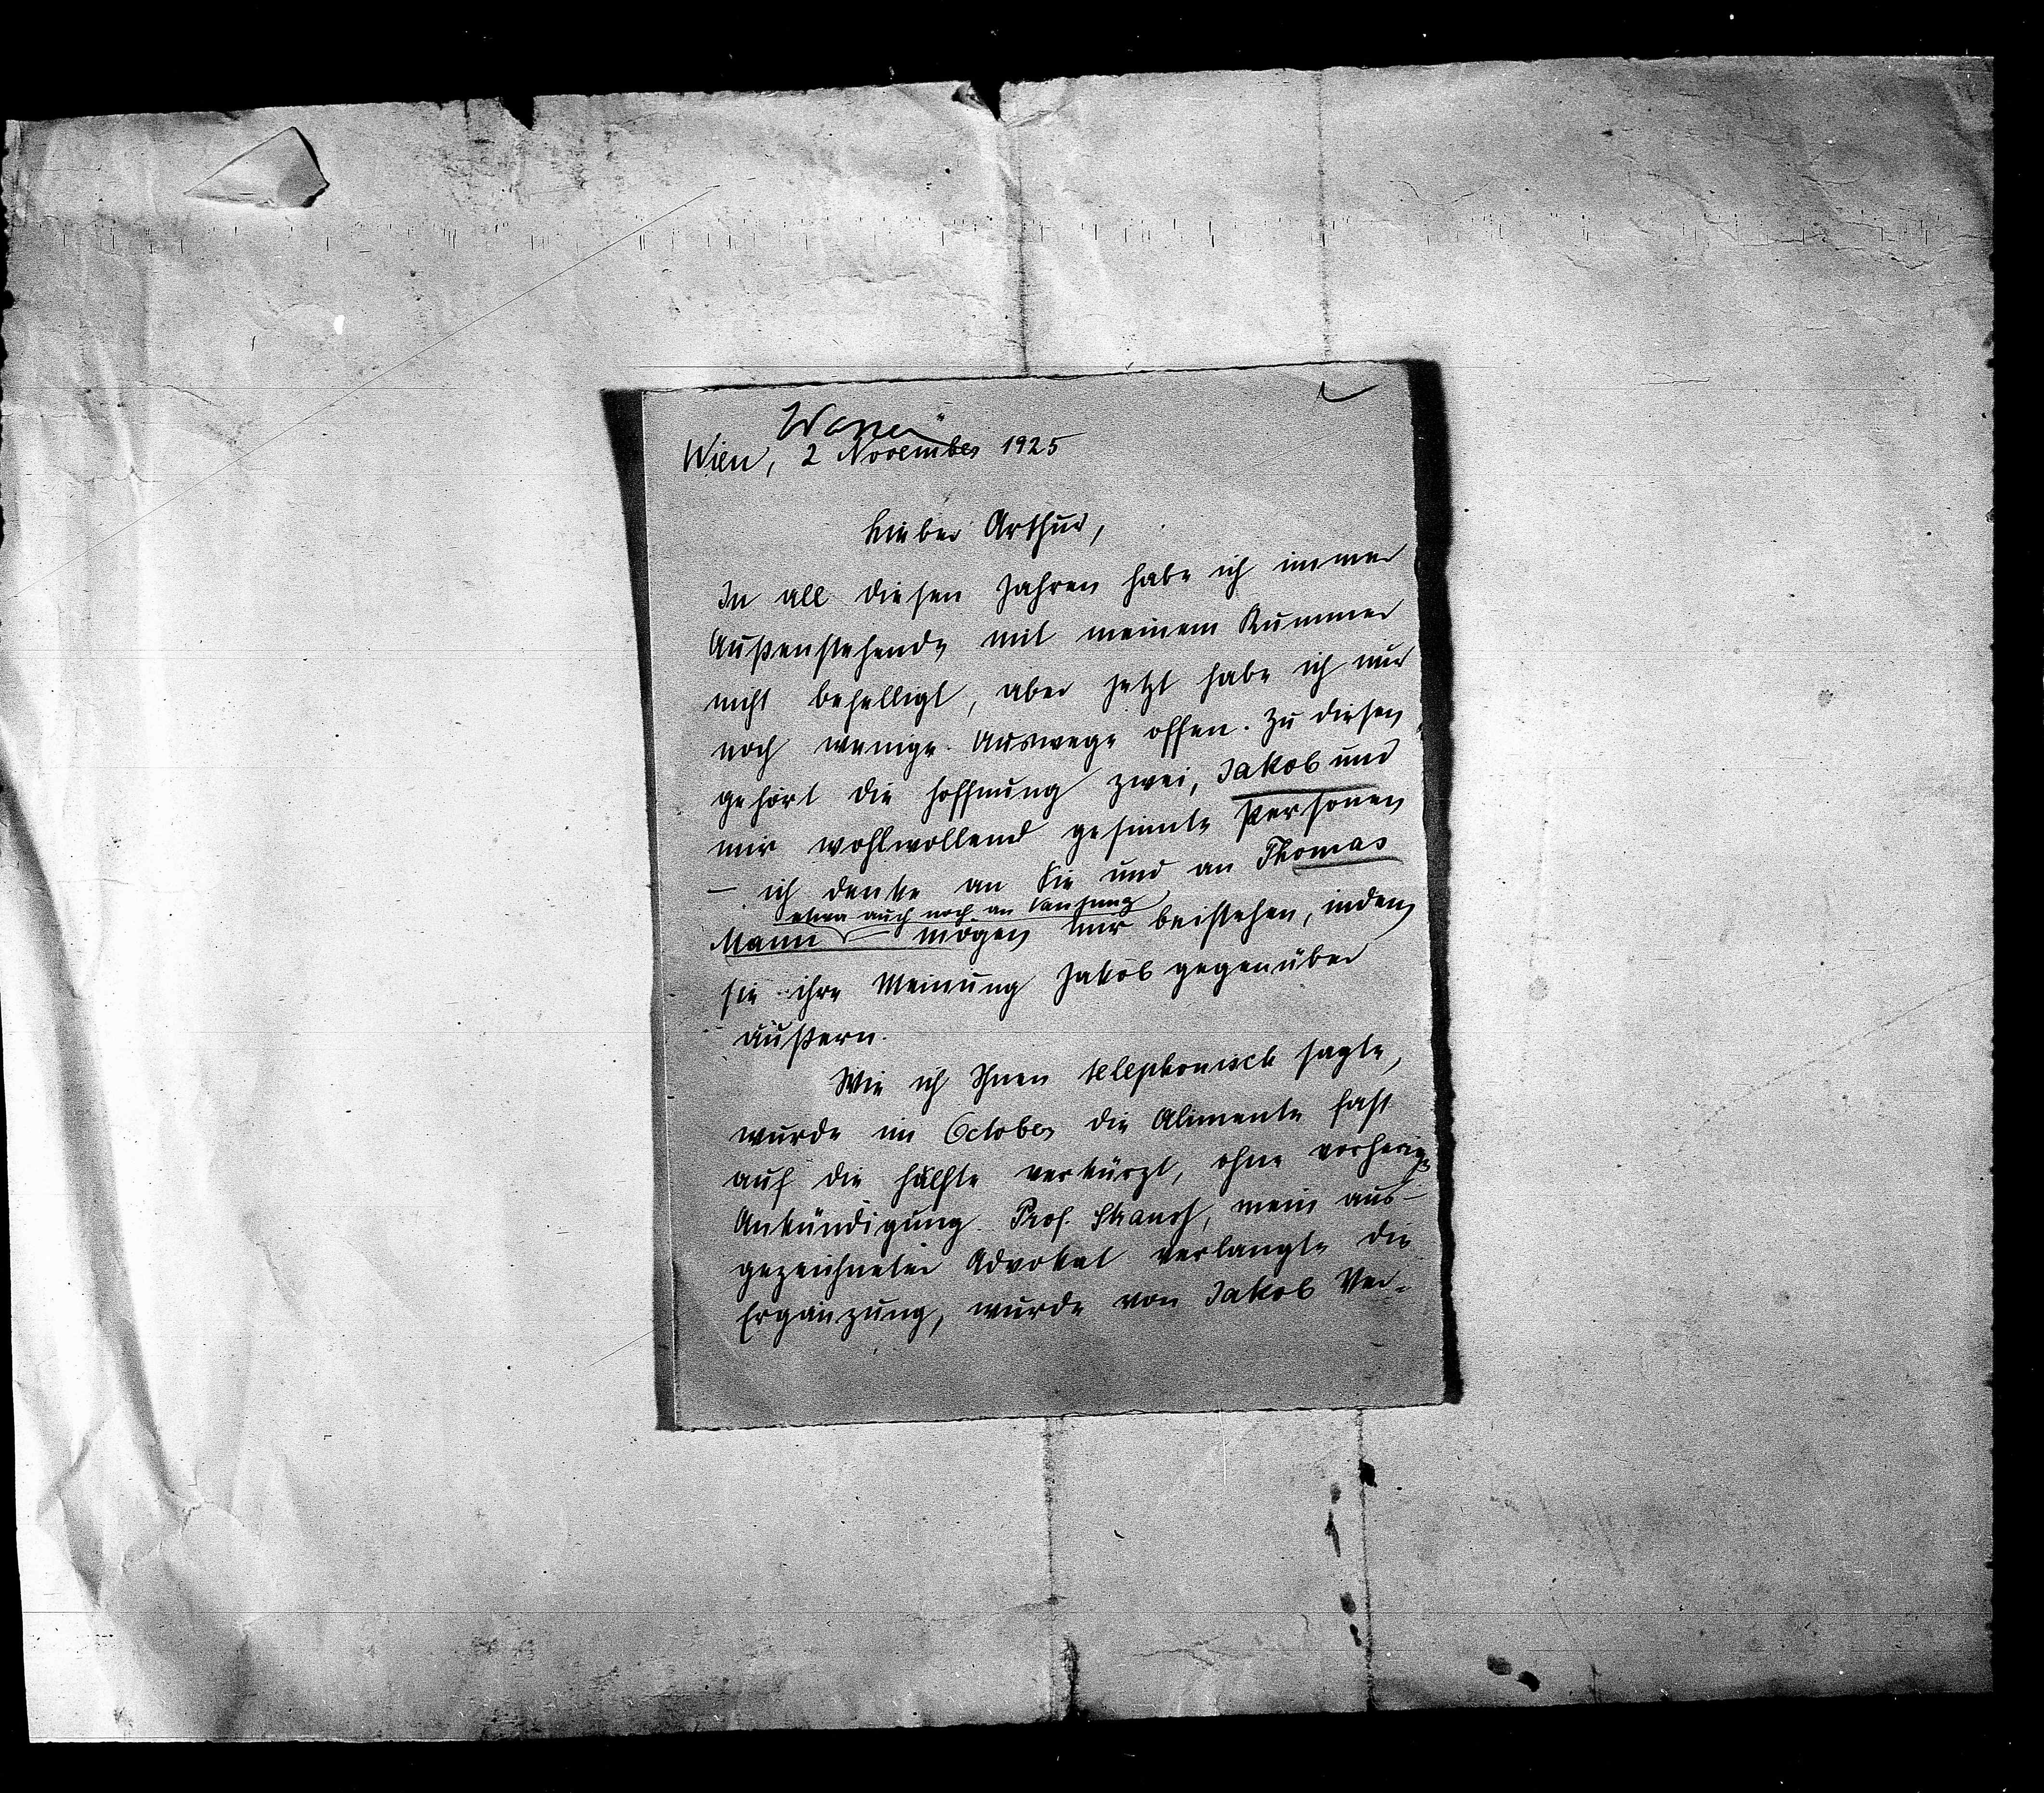 Wien, 2 November 1925
Lieber Arthur,
In all diesen Jahren habe ich immer
Außenstehende mit meinem Kummer
nicht behelligt, aber jetzt habe ich nur
noch wenige Auswege offen. Zu diesen
gehört die Hoffnung zwei, Jakob und
mir wohlwollend gesinnte Personen
– ich denke an Sie und an Thomas
etwa auch noch an
Mann – mögen mir beistehen, indem
sie ihre Meinung Jakob gegenüber
äußern.
Wie ich Ihnen telephonisch sagte,
wurde im October die Alimente fast
auf die Hälfte verkürzt, ohne vorherige
Ankündigung. Prof. mein aus-
gezeichneter Advokat verlangte die
Ergänzung, wurde von Jakob Ver-